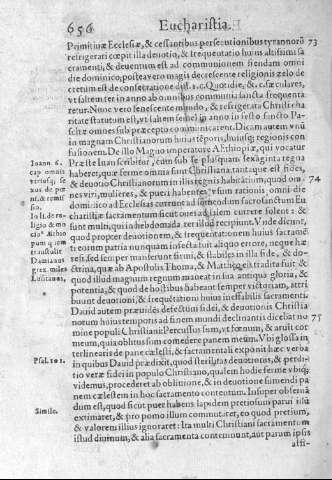 656
Eucharistia.
Primitiuæ Ecclesiæ, & cessantibus persecutionibus tyrannorũ
73
refrigerari cœpit illa deuotio, & frequentatio huius altissimi sa
cramenti, & deuentum est ad communionem fiendam omni
die dominico, postea vero magis decrescente religionis zelo de
cretum est de consecratione dist. 2. c. Quotidie, & c. sæculares,
vt saltem ter in anno ab omnibus communis sancta frequenta
retur. Nunc vero senescente mundo, & refrigerata Christi cha
ritate statutum est, vt saltem semel in anno in festo sancto Pas-
chæ omnes sub præcepto communicarent. Dicam autem vnũ
in magnam Christianorum huius temporis, huiusque regionis con
fusionem. De illo Magno imperatore Æthiopiæ, qui vocatur
Ioann. 6.
Præste Iuan scribitur, cum sub se plusquam sexaginta regna
cap. omnis
haberet, quæ ferme omnia sunt Christiana, tanta que est fides,
vtriusque se
& deuotio Christianorum in illis regnis habitātium, quod om-
74
xus de pœ
nes viri, mulieres, & pueri habentes vsum rationis, omni die
nis, & remis
dominico ad Ecclesias currunt ad sumendum sacrosanctum Eu
sio.
charistiæ sacramentum sicut oues ad salem currere solent: &
In li. de re-
sunt multi, qui in hebdomada ter illud recipiunt. Vnde dicunt,
ligio. & mo
quod propter deuotionem, & frequentationem huius sacramē
rib. Æthio
ti eorum patria nunquam infecta fuit aliquo errore, neque hæ
pum quem
resi, sed semper manserunt firmi, & stabiles in illa fide, & do-
transtulit
ctrina, quæ ab Apostolis Thoma, & Matthæo est tradita fuit: &
Damianus
quod illud magnum regnum maneat in sua antiqua gloria, &
goes miles
potentia, & quod de hostibus habeant semper victoriam, attri
Lusitanus.
buunt deuotioni, & frequentationi huius ineffabilis sacramenti.
Dauid autem præuidēs defectum fidei, & deuotionis Christia
norum huius temporis ad finem mundi declinantis dicebat no
75
mine populi Christiani: Percussus sum, vt fœnum, & aruit cor
meum, quia oblitus sum comedere panem meum. Vbi glossa in
terlinearis de pane cælesti, & sacramentali exponit hæc verba
Psal. 101.
in quibus Dauid prædixit, quod sterilitas deuotionis, & perdi-
tio veræ fidei in populo Christiano, qualem hodie ferme vbique
videmus, procederet ab oblitione, & in deuotione sumendi pa
nem cælestem in hoc sacramento contentum. Insuper obseruā
dum est, quod sicut puer habens lapidem pretiosum parui illũ
Simile.
extimaret, & pro pomo illum commutaret, eo quod pretium,
& valorem illius ignoraret: Ita multi Christiani sacramentum
istud diuinum, & alia sacramenta contemnunt, aut parum ipsis
affi-